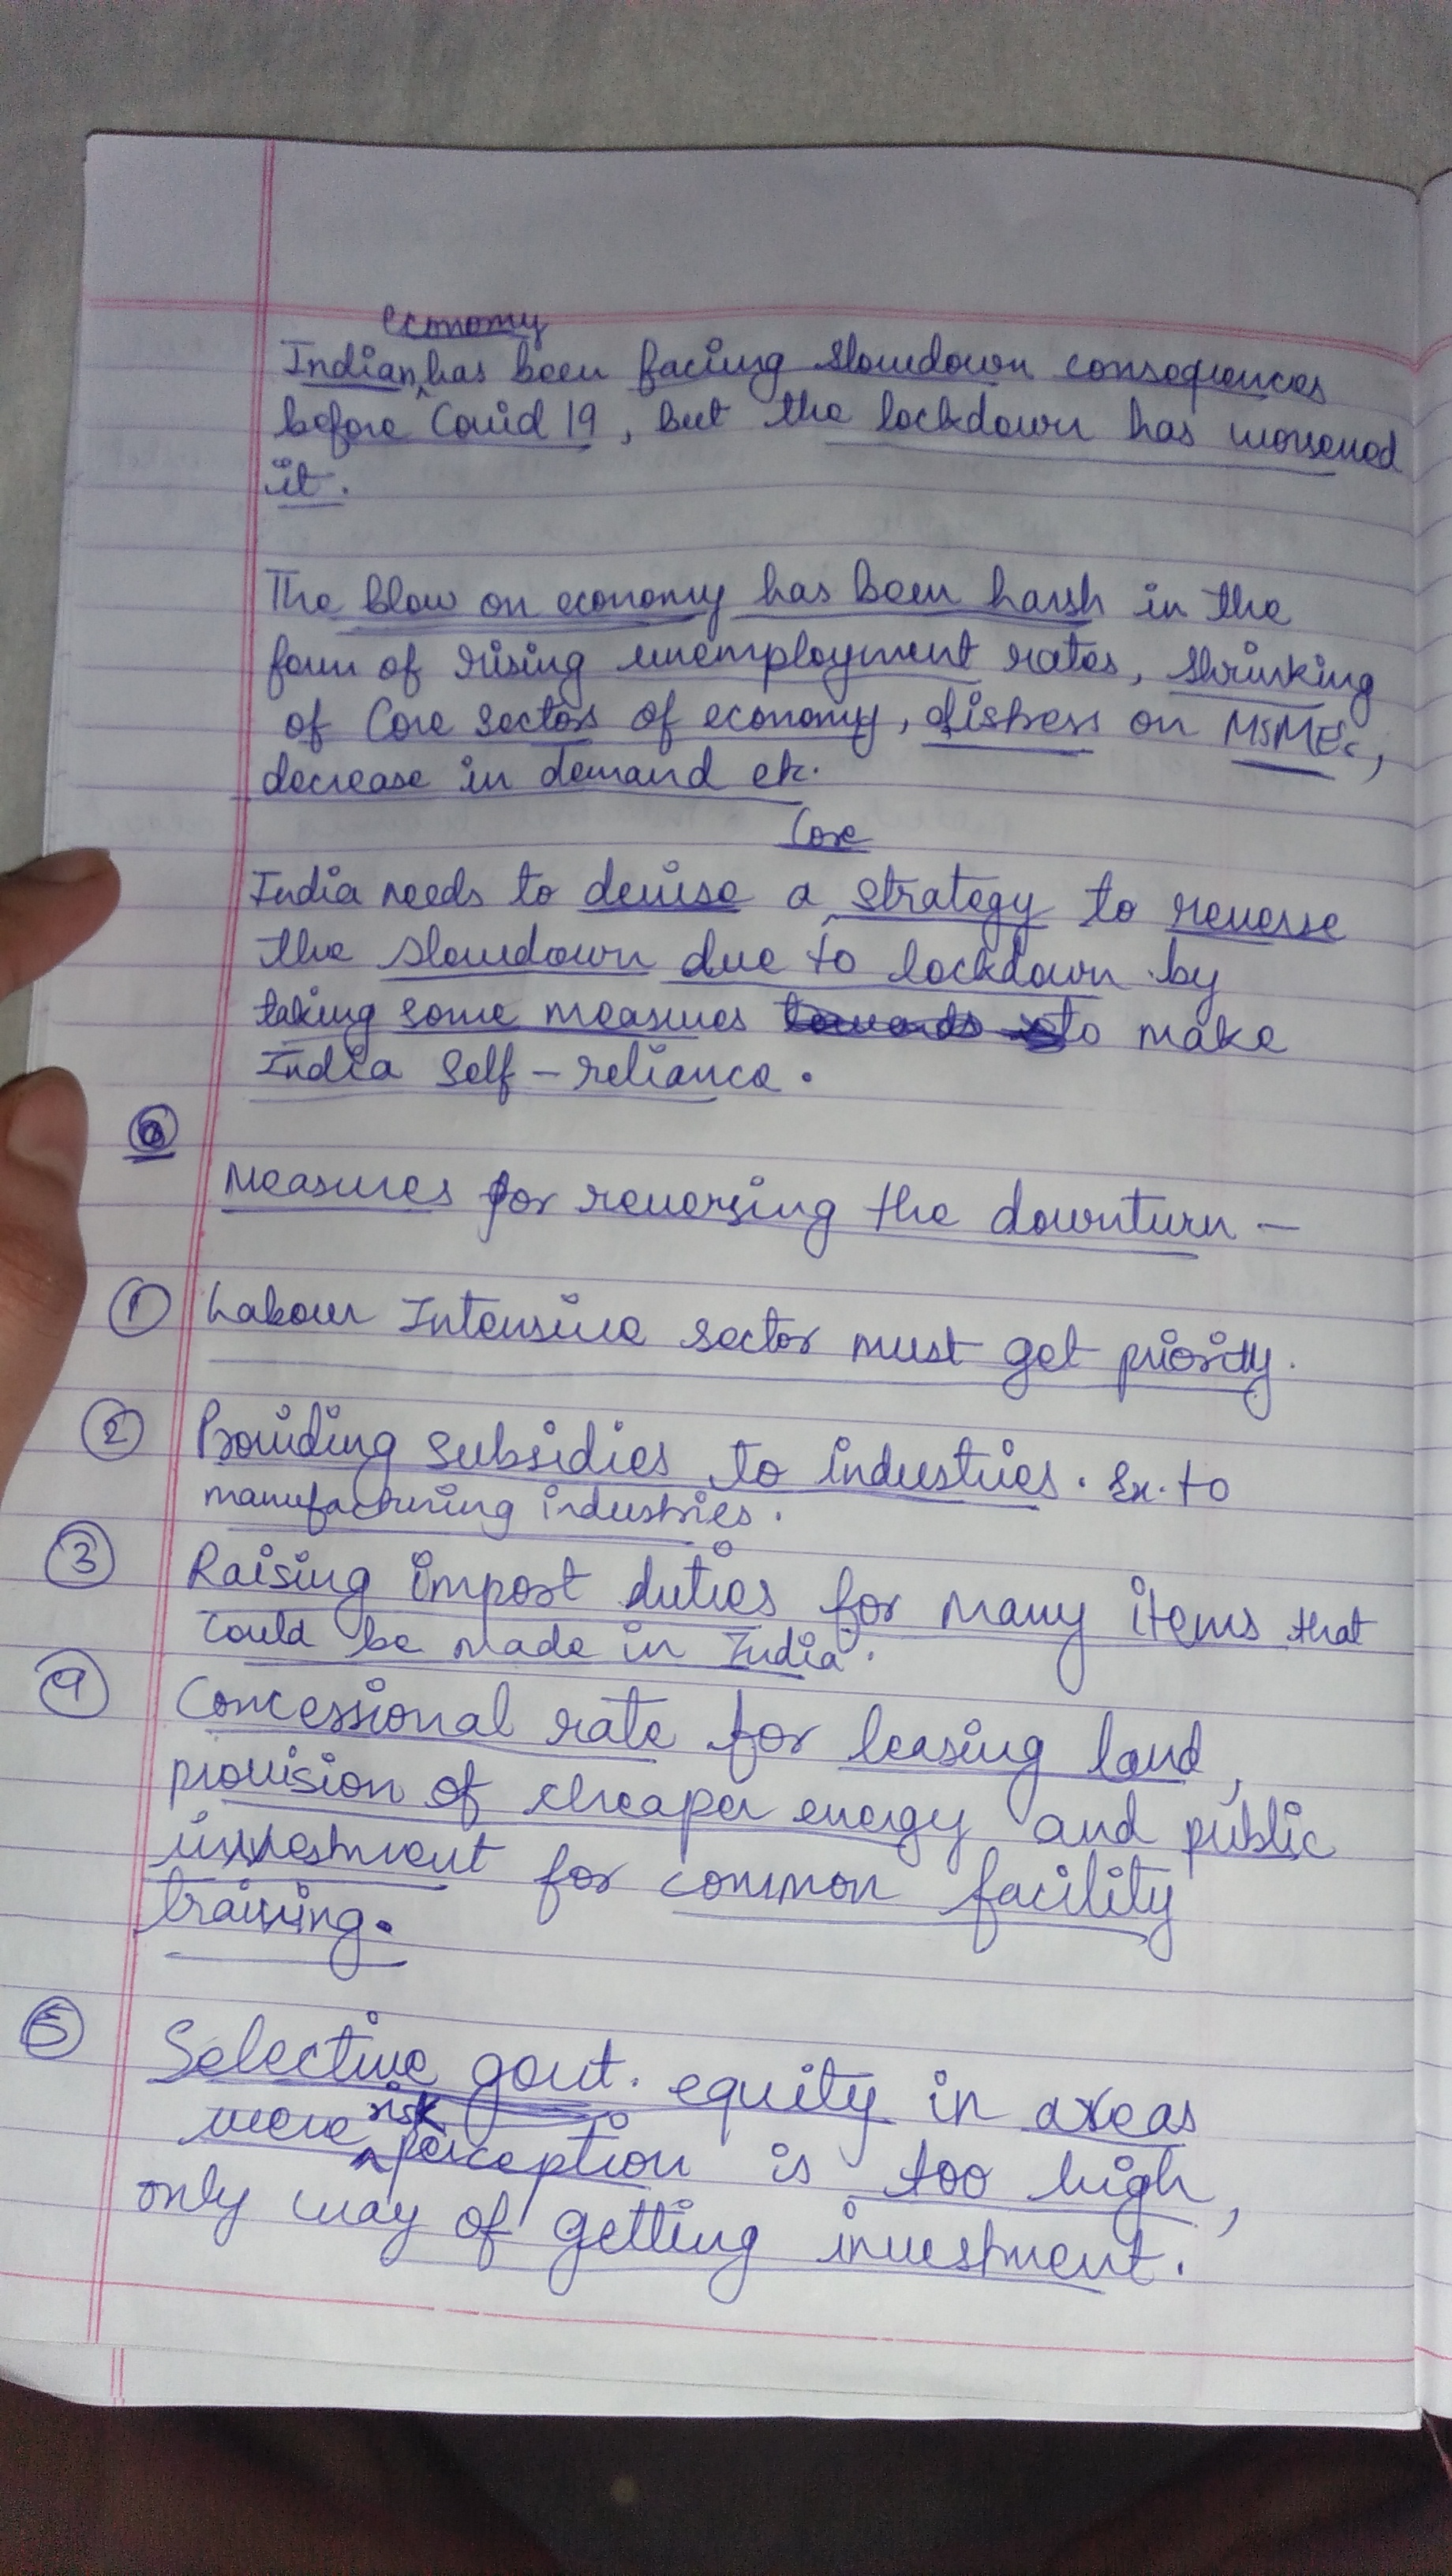 economy
Indian has been facing slowdown consequences
before Covid 19, but the lockdown has worsened
it.
The blow on economy has been harsh in the
form of rising unemployment rates, shrinking
of Core sectors of economy, distress on MSMEs,
decrease in demand etc.
Core
India needs to devise a strategy to reverse
the slowdown due to lockdown by
taking some measures to make
India self-reliance.
Measures for reversing the downturn –
① Labour Intensive sector must get priority.
② Providing subsidies to industries. Ex. to
manufacturing industries.
③ Raising import duties for many items that
could be made in India.
④ Concessional rate for leasing land,
provision of cheaper energy and public
investment for common facility
training.
⑤ Selective govt. equity in areas
risk
were perception is too high,
only way of getting investment.